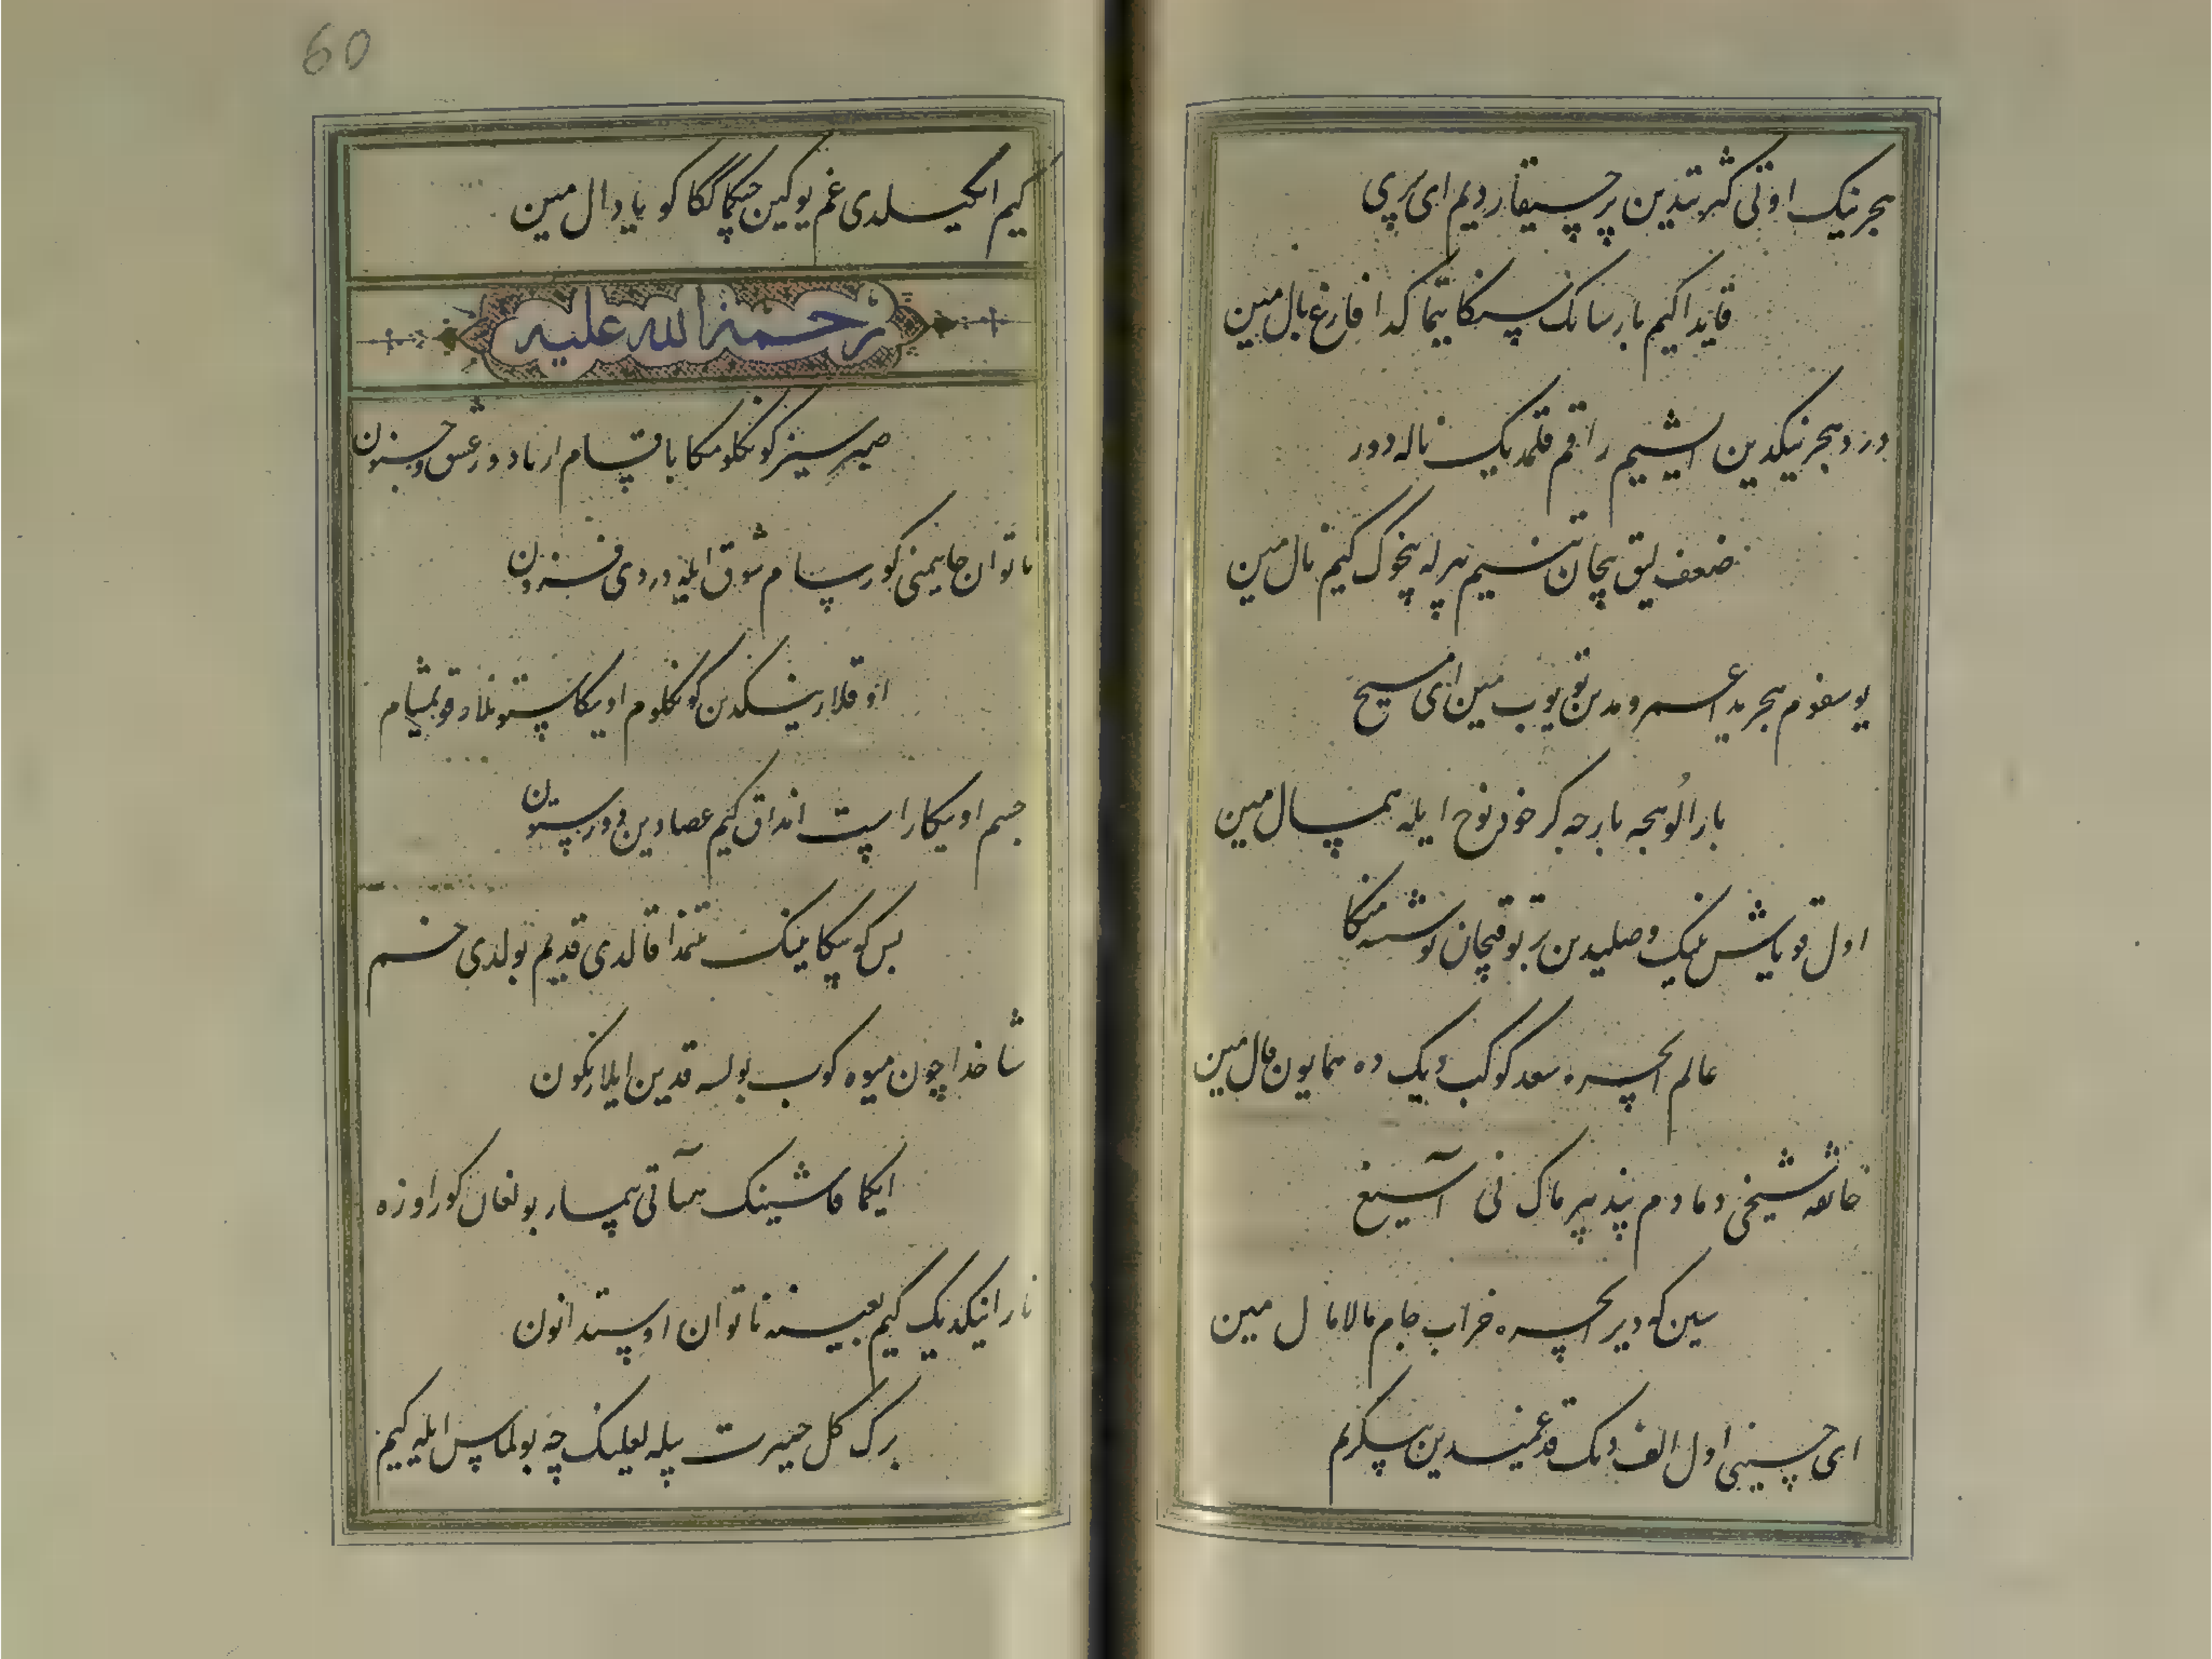 هجرینک اوتی کثرتیدین بر چیقار دیم ای پری
قایدا کیم بارسانک سنکا یتماکدا فارغ بال مین
درد هجرینکدین ایشیم راقم قلمدیک ناله دور
ضعف لیق بیجان تنیم بیرله بخوک کیم نال مین
یوسفوم هجریدا عمرومدین تویوب مین ای مسیح
بار الوبجه بارجه کر خود نوح ایله همسال مین
اول قویاش نینک وصلیدین تر توقیجان توشته منکا
عالم ایچره سعد کوکب دیک ده همایون فال مین
خانقه شیخی دمادم پند بیرماک نی آسیغ
سین که دیر ایچره خراب جام مالامال مین
ای حسینی اول الف دیک قد غمیدین بیکریم
60
کیم ایکیلدی غم یوکین چیکماککا کویا دال مین
رحمة الله علیه
صبر سیز کونکلومکا باقسام ارتادور عشق و جنون
ناتوان جانیمنی کورسام شوق ایله دردی فزون
اوقلارینکدین کونکلوم اویکا ستونلار قویمیشام
جسم اویکا راست انداق کیم عصادین دور ستون
بس کونیکا مینک تمنا قالدی قدیم بولدی خم
شاخ دا چون میوه کوب بولسه قدین ایلار نکون
ایکما قاشینک هیأتی بیمار بولغان کوز اوزه
نارانیکدیک کیم بعینه ناتوان اوستیدا نون
برک کل حیرت بیله لعلینک چه بولماس ایله کیم